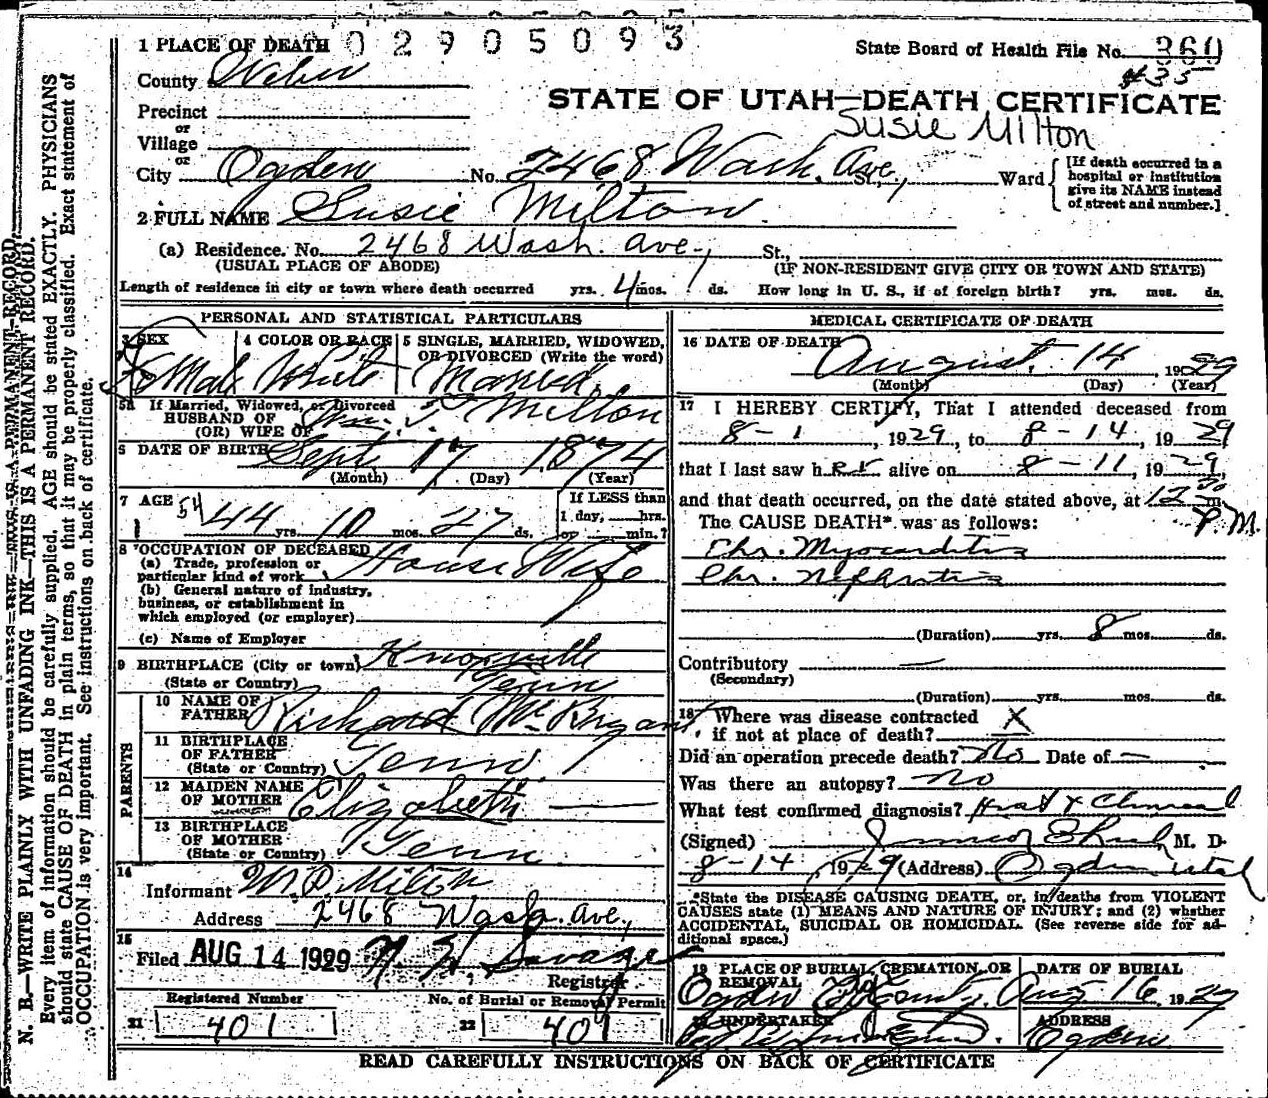 0 2 9 0 5 0 9 3
1 PLACE OF DEATH
State Board of Health File No. 360
#35
County Weber
STATE OF UTAH—DEATH CERTIFICATE
Susie Milton
Precinct
or
Village
or
City Ogden No. 2468 Wash. Ave., St., Ward
[If death occurred in a hospital or institution give its NAME instead of street and number.]
2 FULL NAME Susie Milton.
(a) Residence. No. 2468 Wash. ave., St.,
(USUAL PLACE OF ABODE) (IF NON-RESIDENT GIVE CITY OR TOWN AND STATE)
Length of residence in city or town where death occurred yrs. 4 mos. ds. How long in U. S., if of foreign birth? yrs. mos. ds.
PERSONAL AND STATISTICAL PARTICULARS
3 SEX 4 COLOR OR RACE 5 SINGLE, MARRIED, WIDOWED, OR DIVORCED (Write the word)
White Married.
5A If Married, Widowed, or Divorced
HUSBAND OF
(OR) WIFE OF Milton
6 DATE OF BIRTH Sept 17 1874
(Month) (Day) (Year)
7 AGE 54 44 yrs. 10 mos. 27 ds.
If LESS than
1 day, hrs.
or min.?
8 OCCUPATION OF DECEASED
(a) Trade, profession or
particular kind of work House Wife
(b) General nature of industry,
business, or establishment in
which employed (or employer)
(c) Name of Employer
9 BIRTHPLACE (City or town) Knoxville
(State or Country) Tenn
PARENTS
10 NAME OF
FATHER Richard McBryant
11 BIRTHPLACE
OF FATHER
(State or Country) Tenn.
12 MAIDEN NAME
OF MOTHER Elizabeth —
13 BIRTHPLACE
OF MOTHER
(State or Country) Tenn.
14
Informant W.P. Milton
Address 2468 Wash. Ave.,
15
Filed AUG 14 1929 Savage
Registrar
Registered Number No. of Burial or Removal Permit
21 401 22 401
MEDICAL CERTIFICATE OF DEATH
16 DATE OF DEATH
August 14 1929
(Month) (Day) (Year)
17 I HEREBY CERTIFY, That I attended deceased from
8-1, 1929, to 8-14, 1929
that I last saw her alive on 8-11, 1929,
and that death occurred, on the date stated above, at 12 00 m.
P.M.
The CAUSE DEATH* was as follows:
Chr. Myocarditis
Chr. Nephritis
(Duration) yrs. 8 mos. ds.
Contributory —
(Secondary)
(Duration) yrs. mos. ds.
18 Where was disease contracted
if not at place of death? X
Did an operation precede death? No Date of —
Was there an autopsy? no
What test confirmed diagnosis? Clinical
(Signed) M. D.
8-14, 1929 (Address) Ogden Utah
*State the DISEASE CAUSING DEATH, or, in deaths from VIOLENT
CAUSES state (1) MEANS AND NATURE OF INJURY; and (2) whether
ACCIDENTAL, SUICIDAL OR HOMICIDAL. (See reverse side for ad-
ditional space.)
19 PLACE OF BURIAL, CREMATION, OR
REMOVAL
DATE OF BURIAL
Ogden Aug. 16, 1929
20 UNDERTAKER ADDRESS
Ogden
READ CAREFULLY INSTRUCTIONS ON BACK OF CERTIFICATE
N. B.—WRITE PLAINLY WITH UNFADING INK—THIS IS A PERMANENT RECORD.
Every item of information should be carefully supplied. AGE should be stated EXACTLY. PHYSICIANS
should state CAUSE OF DEATH in plain terms, so that it may be properly classified. Exact statement of
OCCUPATION is very important. See instructions on back of certificate.